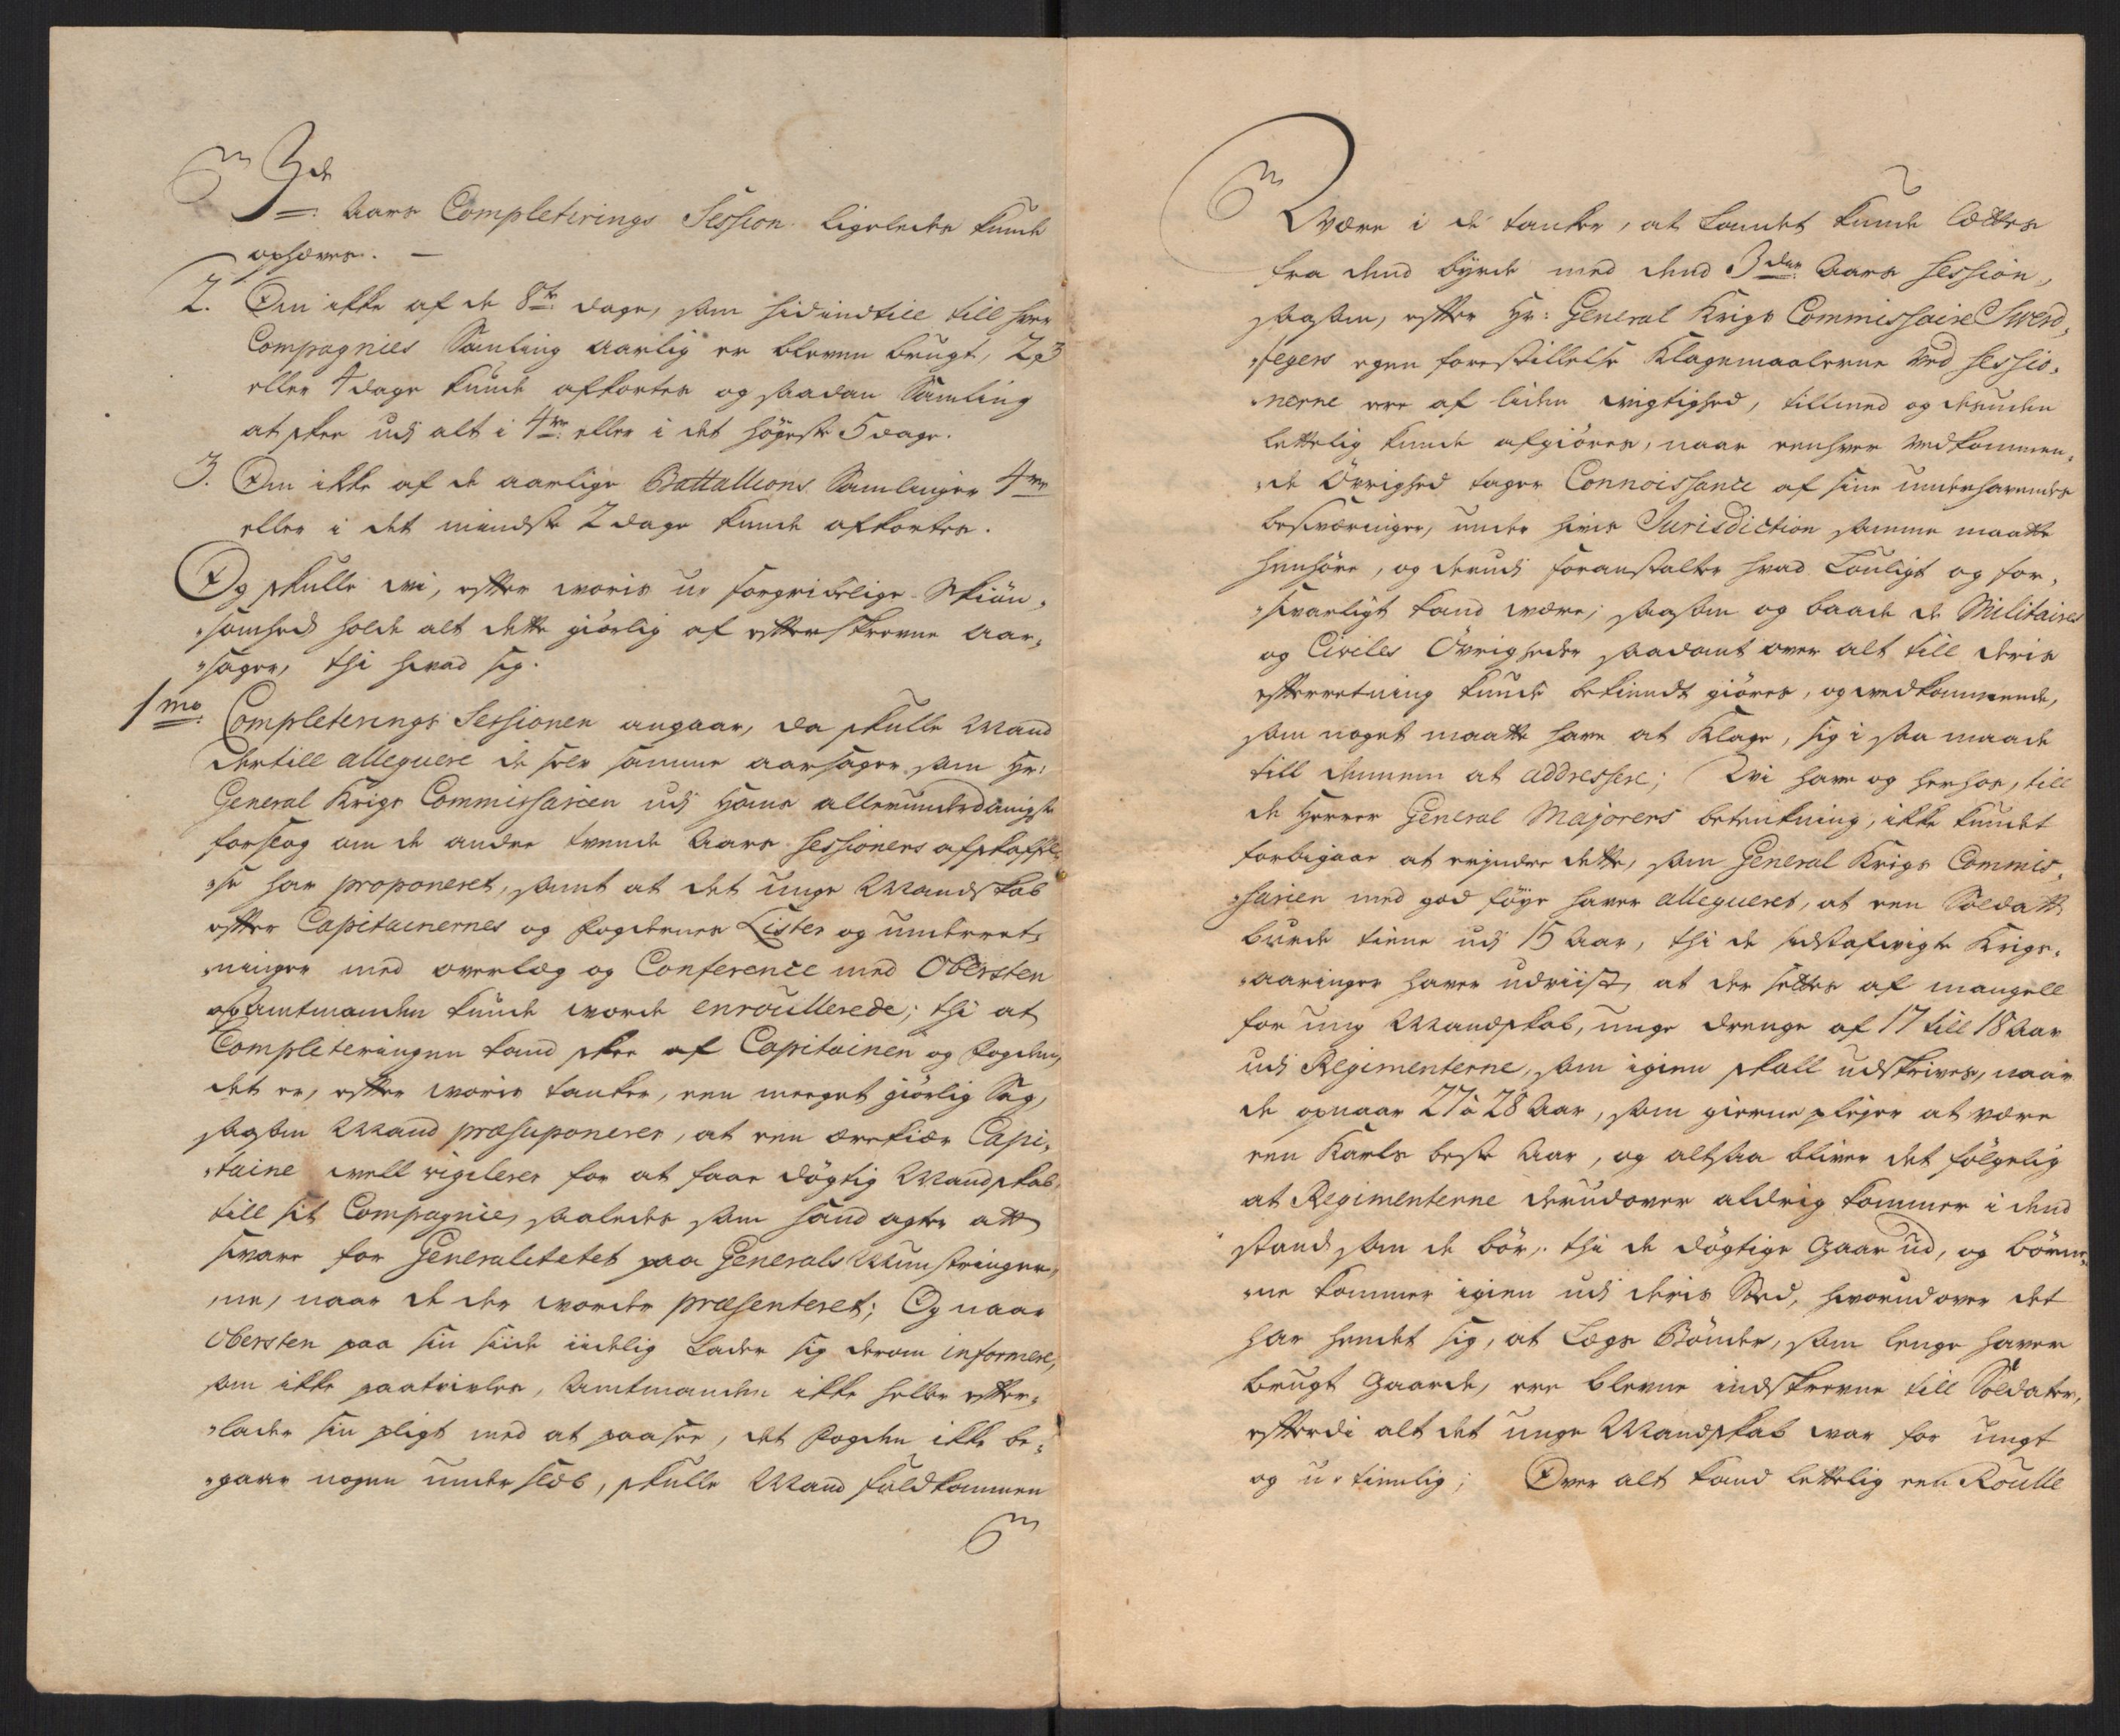 3de Aars Completerings Session ligeledes kunde
ophæves. —
2. Om ikke af de 8te dage, som hidindtill till hver
Compagnies Samling aarlig er bleven brugt, 2, 3
eller 4 dage kunde afkortes og saadan Samling
at skee udj alt i 4re eller i det høyeste 5 dage.
3. Om ikke af de aarlige Battallions Samlinger 4re
eller i det mindste 2 dage kunde afkortes.
Og skulle wi, efter woris u-forgribelige Skiøn-
somhed holde alt dette giørlig af efterskrevne aar-
sager, thi hvad sig.
1mo. Completerings Sessionen angaar, da skulle Mand
dertill alleguere de selv samme aarsager som Hr:
General Krigs Commissarien udj Hans allerunderdanigste
forslag om de andre tvende Aars Sessioners afskaffel-
se har proponeret, samt at det unge Mandskab
efter Capitainernes og Fogdernes Lister og underret-
ninger med overlæg og Conference med Obersten
og Amtmanden kunde worde enroullerede; thi at
Completeringen kand skee af Capitainen og Fogden,
det er, efter woris tanker, een meeget giørlig Sag,
saasom Mand præsuponerer, at een ærekiær Capi-
taine well vigilerer for at faae døgtig Mandskab
till sit Compagnie, saaledes som hand agter att
svare for Generalitetet paa Generals Munstringer-
ne, naar de der worder præsenteret; Og naar
Obersten paa sin siide iidelig Lader sig derom informere,
som ikke paatvivles, Amtmanden ikke heller efter-
lader sin pligt med at paasee, det Fogden ikke be-
gaar nogen underslæb, skulle Mand fuldkommen
Være i de tanker, at Landet kunde lættes
fra dend byrde med dend 3die Aars Session,
saasom, efter Hr: General Krigs Commissaire Swerd-
fegers egen forestillelse Klagemaalerne ved Sessio-
nerne ere af liden wigtighed, tillmed og desuden
lettelig kunde afgiøres, naar eenhver vedkommen-
de Øvrighed tager Connoissance af sine underhavendes
besværinger, under hvis Jurisdiction samme maatte
henhøre, og derudj foranstalter hvad Louligt og for-
svarligt kand være; saasom og baade de Militaires
og Civiles Øvrigheder saadant over alt till deris
efterretning kunde bekiendt giøres, og vedkommende,
som noget maatte have at Klage, sig i saa maade
till dennem at addressere; Wi have og herhos, till
de Herrer General Majorers betænkning, ikke kundet
forbigaae at erindre dette, som General Krigs Commis-
sarien med god føye haver allegueret, at een Soldatt
burde tiene udj 15 Aar, thi de sidstafvigte Krigs-
aaringer haver udviist, at der settes af mangell
for ung Mandskab, unge drenge af 17 till 18 Aar
udj Regimenterne, som igien skall udskrives, naar
de opnaar 27 à 28 Aar, som gierne pleyer at være
een Karls beste Aar, og altsaa bliver det følgelig
at Regimenterne derudover aldrig kommer i dend
stand som de bør, thi de døgtige gaar ud, og børne-
ne kommer igien udj deris Sted, hvorudover det
har hendet sig, at Lægs Bønder, som lenge haver
brugt gaarde, ere blevne indskrevne till Soldater,
efterdi alt det unge Mandskab war for ungt
og u-tienlig; Over alt kand lettelig een Roulle